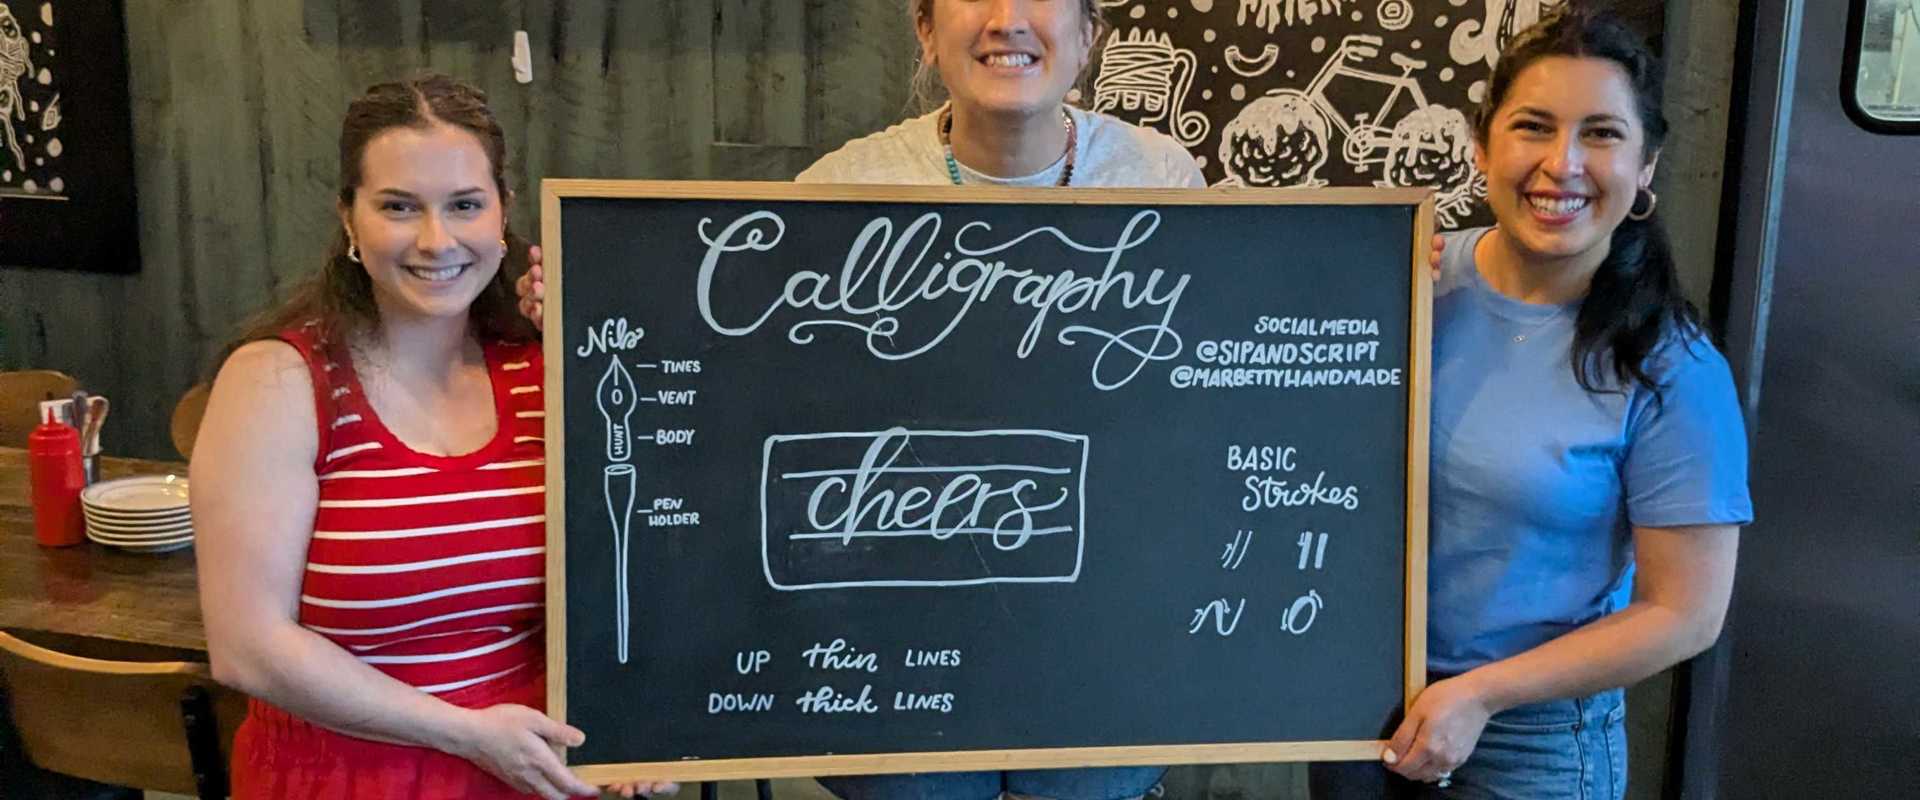 Calligraphy
SOCIAL MEDIA
@SIPANDSCRIPT
@MARBETTYHANDMADE
Nib
TINES
VENT
BODY
HUNT
PEN
HOLDER
cheers
BASIC
Strokes
UP thin LINES
DOWN thick LINES